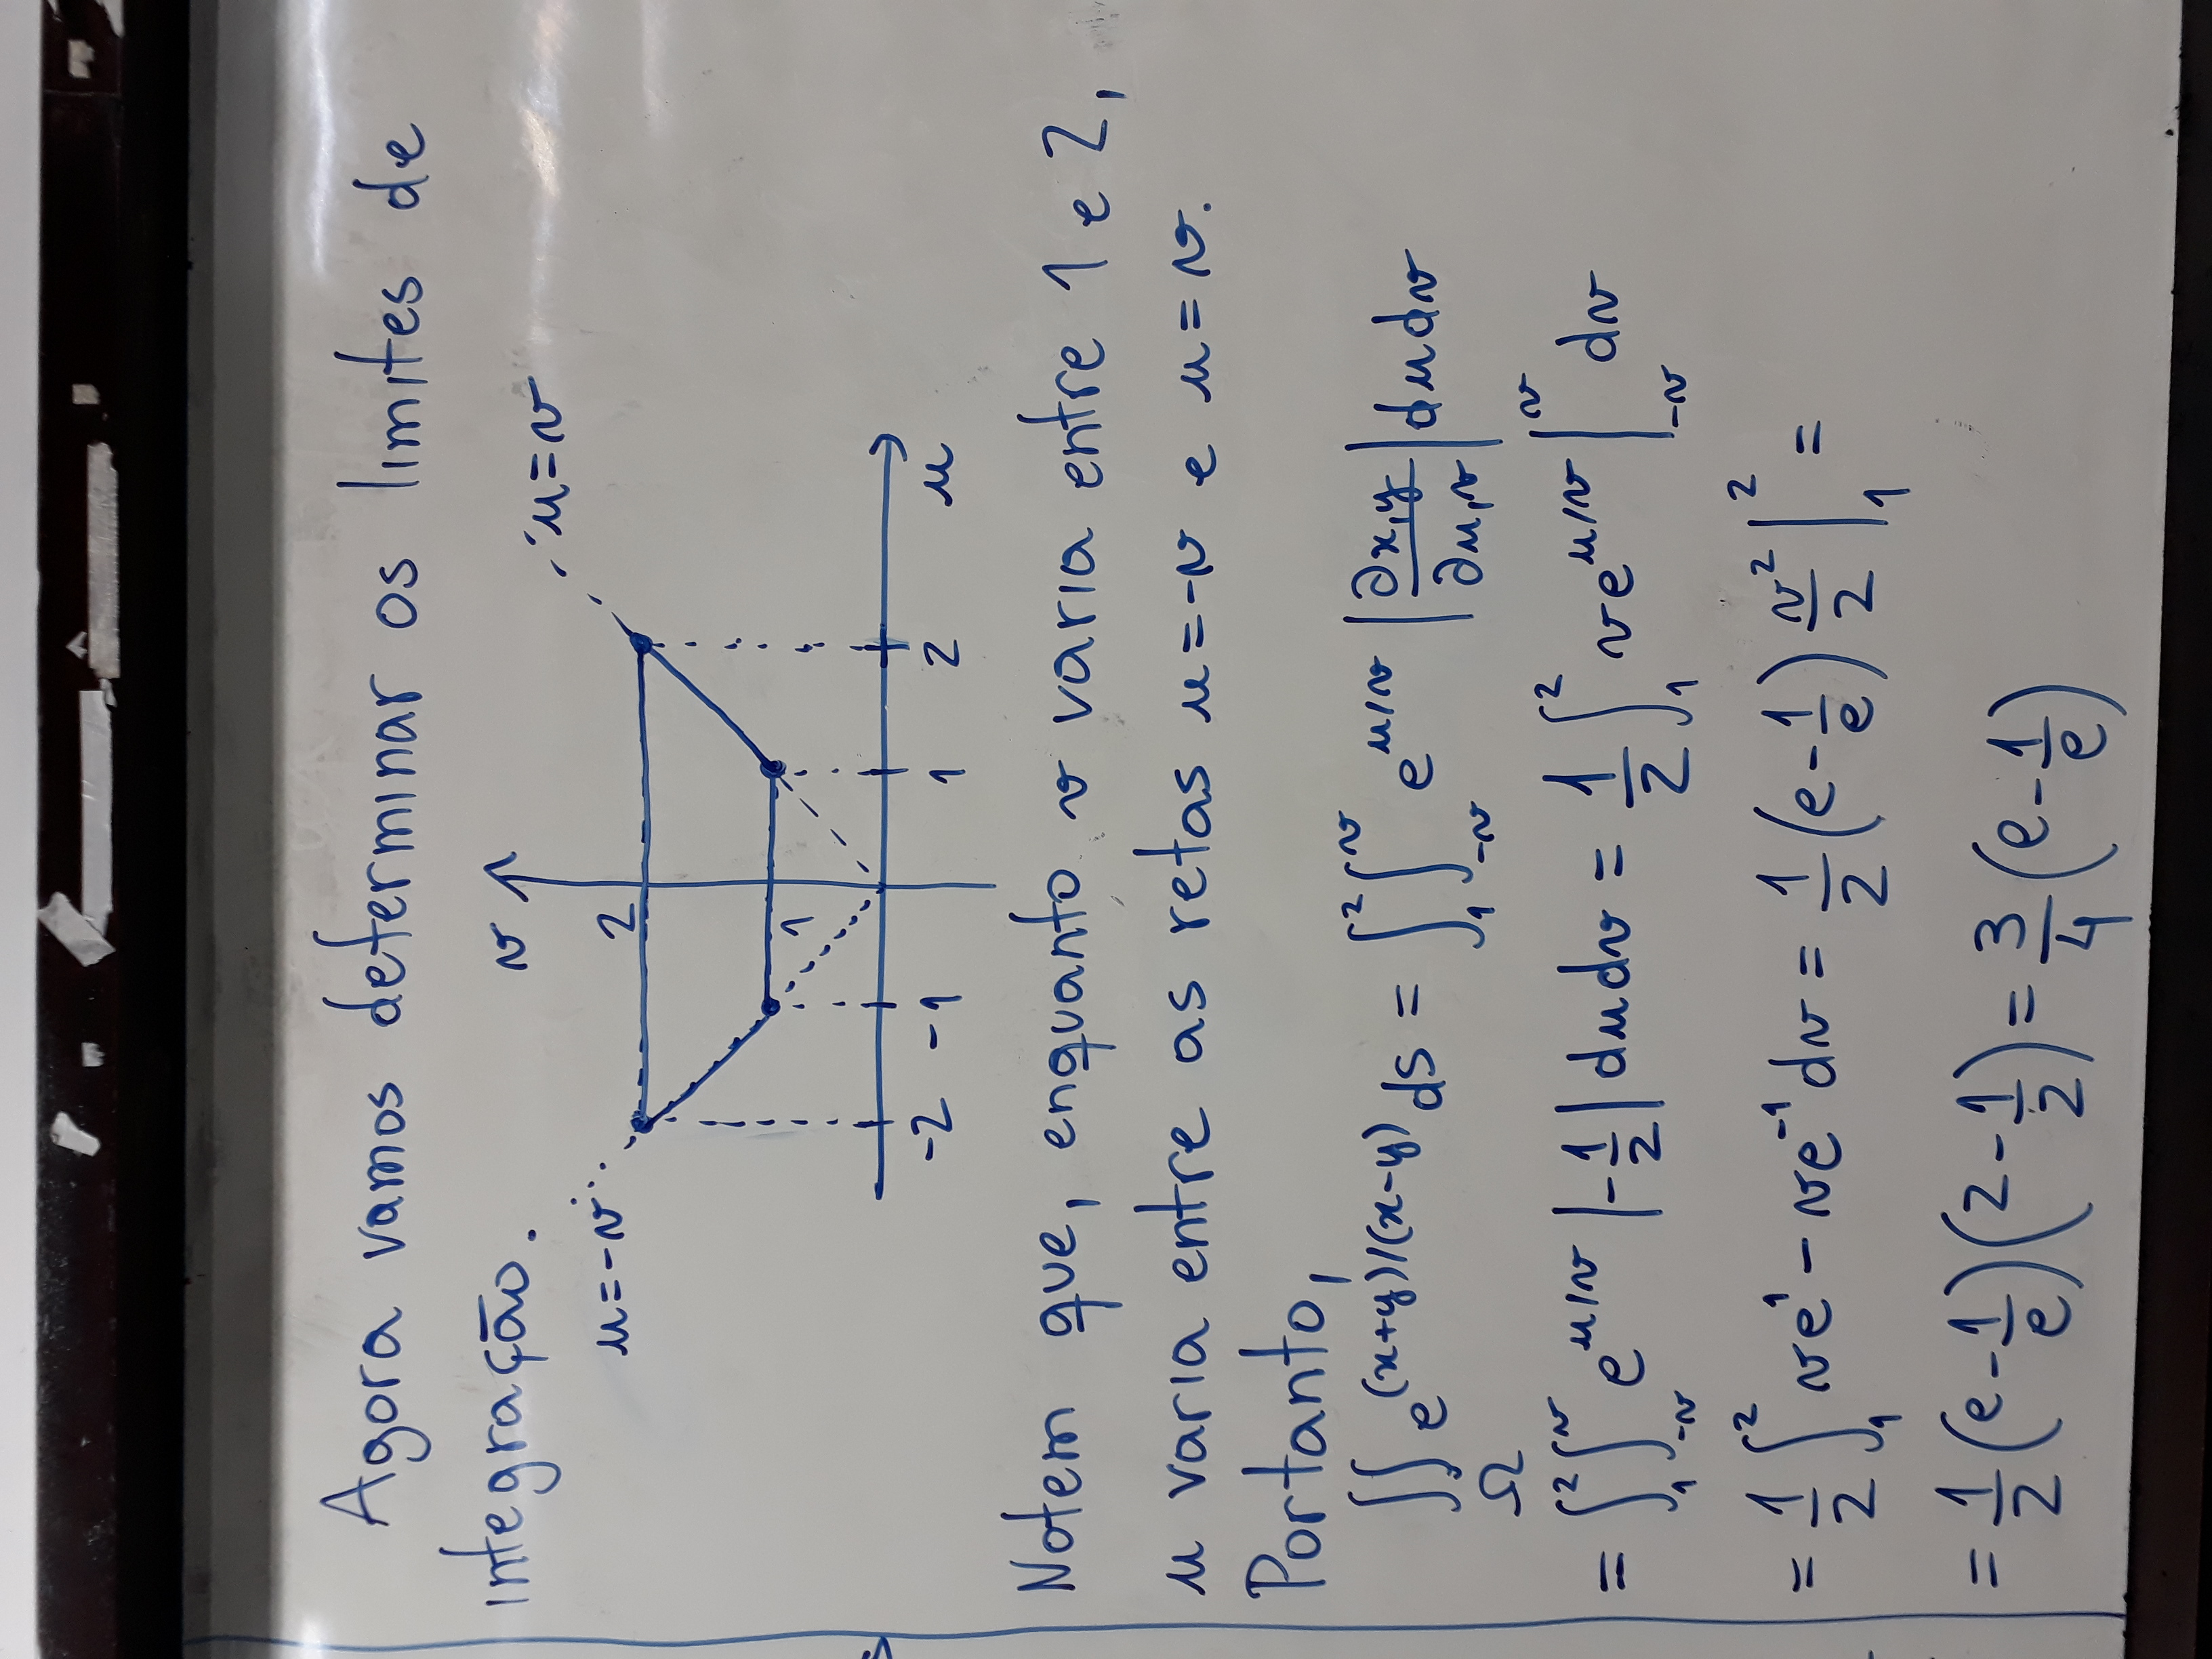 Agora vamos determinar os limites de
integração.
v
u=v
u=-v
2
1
-2 -1 1 2 u
Notem que, enquanto v varia entre 1 e 2,
u varia entre as retas u=-v e u=v.
Portanto,
∬_Ω e^{(x+y)/(x-y)} ds = ∫_1^2 ∫_{-v}^{v} e^{u/v} |∂x,y/∂u,v| du dv
= ∫_1^2 ∫_{-v}^{v} e^{u/v} |-1/2| du dv = 1/2 ∫_1^2 ve^{u/v} |_{-v}^{v} dv
= 1/2 ∫_1^2 ve^1 - ve^{-1} dv = 1/2 (e - 1/e) v^2/2 |_1^2 =
= 1/2 (e - 1/e)(2 - 1/2) = 3/4 (e - 1/e)